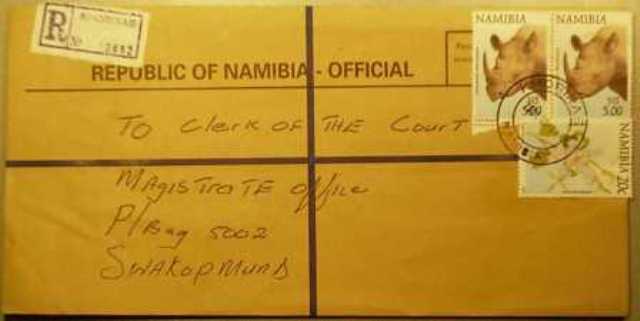 R
No 3652
NAMIBIA NAMIBIA
5.00 5.00
REPUBLIC OF NAMIBIA - OFFICIAL
NAMIBIA 20c
To Clerk of THE Court
MAgisTraTE office
P/Bag 5002
SwakopMunD